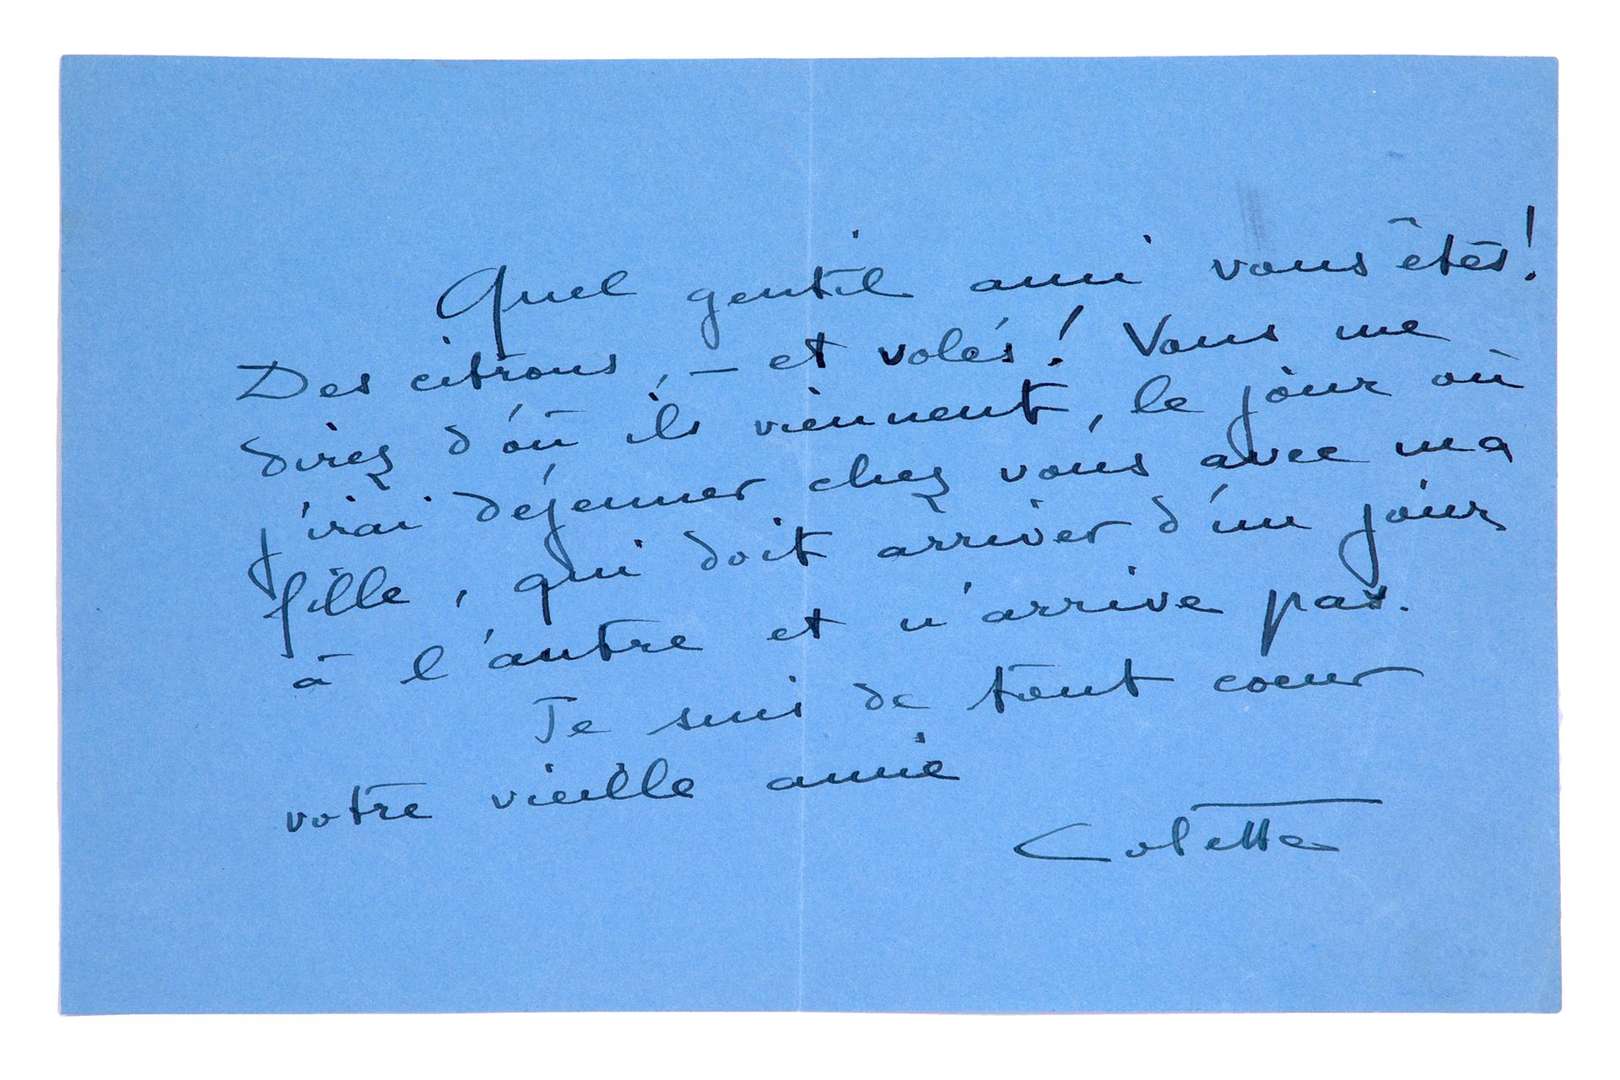 Quel gentil ami vous êtes!
Des citrons, — et volés! Vous me
direz d'où ils viennent, le jour où
j'irai déjeuner chez vous avec ma
fille, qui doit arriver d'un jour
à l'autre et n'arrive pas.
Je suis de tout coeur
votre vieille amie
Colette